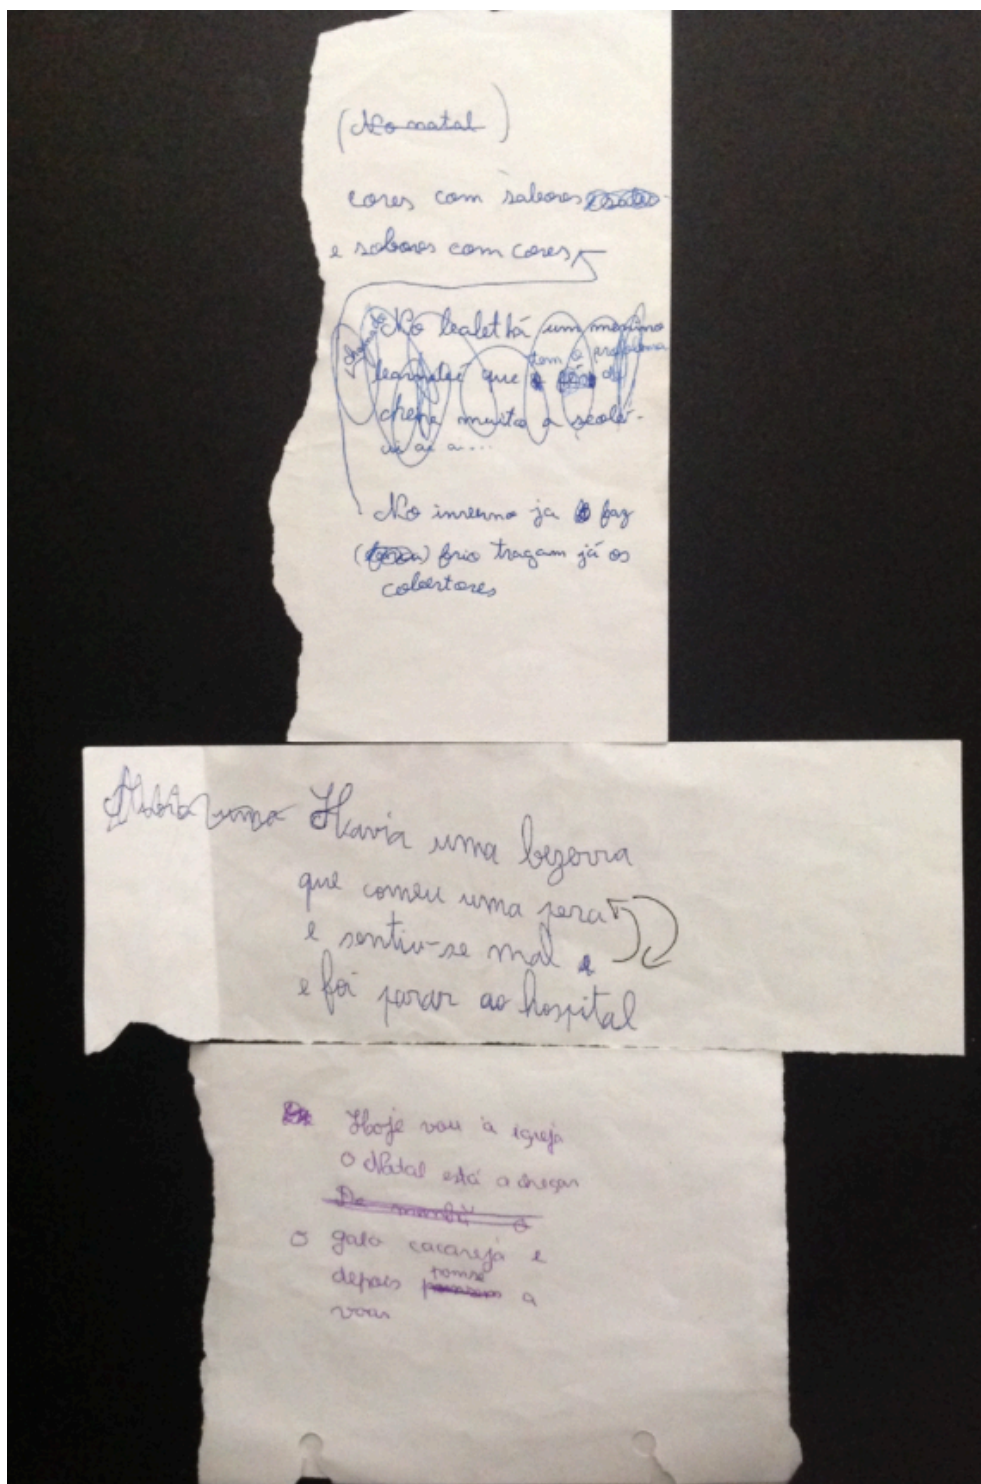 (No natal)
cores com sabores
e sabores com cores
chamado
No há um menino
tem o problema
que de
muito a
ai ai a...
No inverno ja faz
() frio tragam já os
cobertores
Havia uma Havia uma bezerra
que comeu uma pera
e sentiu-se mal e
e foi parar ao hospital
Hoje vou à igreja
O Natal está a chegar
De manhã o
o galo cacareja e
pomse
depois a
voar